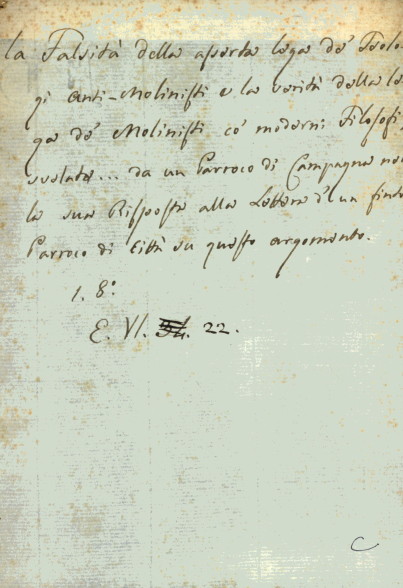 la Falsità della asserta lega de' Teolo-
gi Anti-Molinisti e la verità della le
ga de' Molinisti co' moderni Filosofi,
svelate... da un Parroco di Campagna nel
la sua Risposta alla Lettera d'un finto
Parroco di Città su questo argomento.
1. 8.º
E. VI. 22.
C